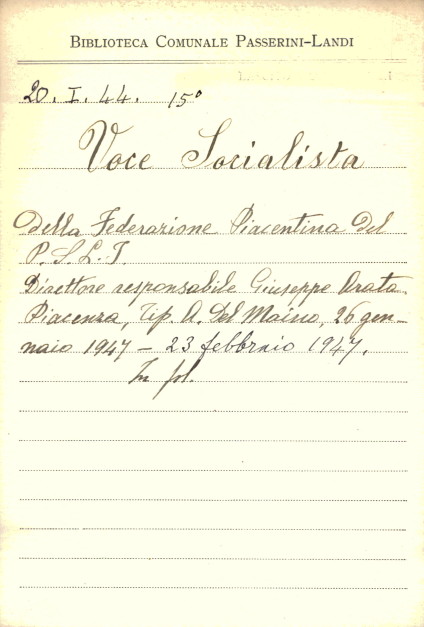 BIBLIOTECA COMUNALE PASSERINI-LANDI
20. I. 44. 15°
Voce Socialista
della Federazione Piacentina del
P. S. L. I.
Direttore responsabile Giuseppe Arata.
Piacenza, Tip. A. Del Maino, 26 gen-
naio 1947 - 23 febbraio 1947.
In fol.